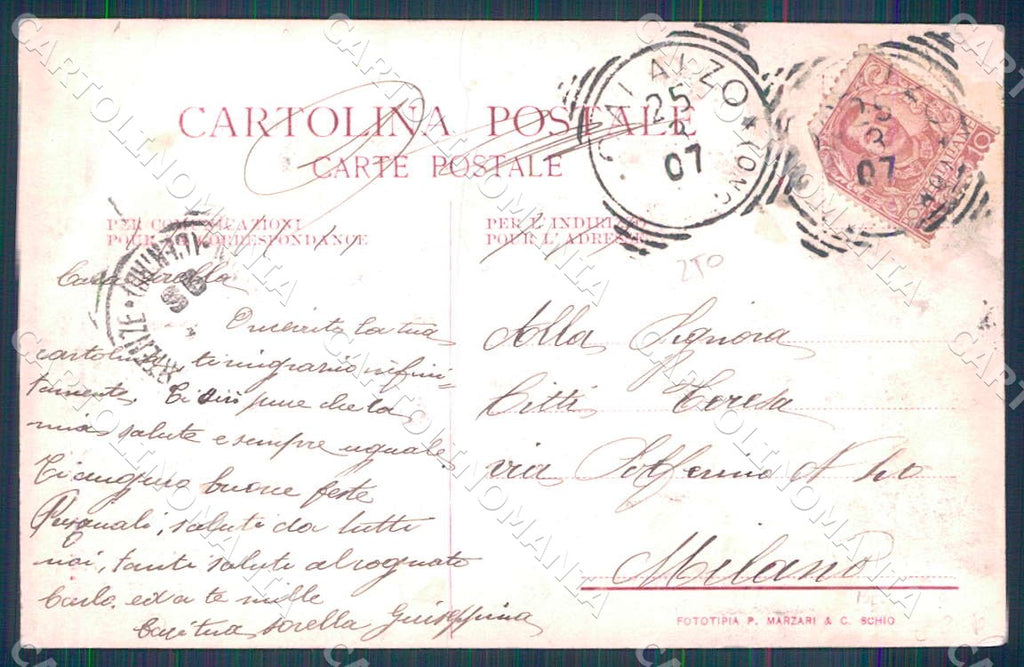 CARTOLINA POSTALE
CARTE POSTALE
PER COMUNICAZIONI
POUR CORRESPONDANCE
PER L'INDIRIZZO
POUR L'ADRESSE
25
3
07
25
3
07
10
Cara sorella
O ricevuto la tua
cartolina, ti ringrazio infini-
tamente. Ti dirò pure che la
mia salute e sempre uguale.
Ti auguro buone feste
Pasquali, saluti da tutti
noi, tanti saluti al cognato
Carlo. ed a te mille
tua sorella Giuseppina
Alla Signora
Citti Teresa
via Solferino N
Milano
FOTOTIPIA P. MARZARI & C. SCHIO
CARTOLINOMANIA